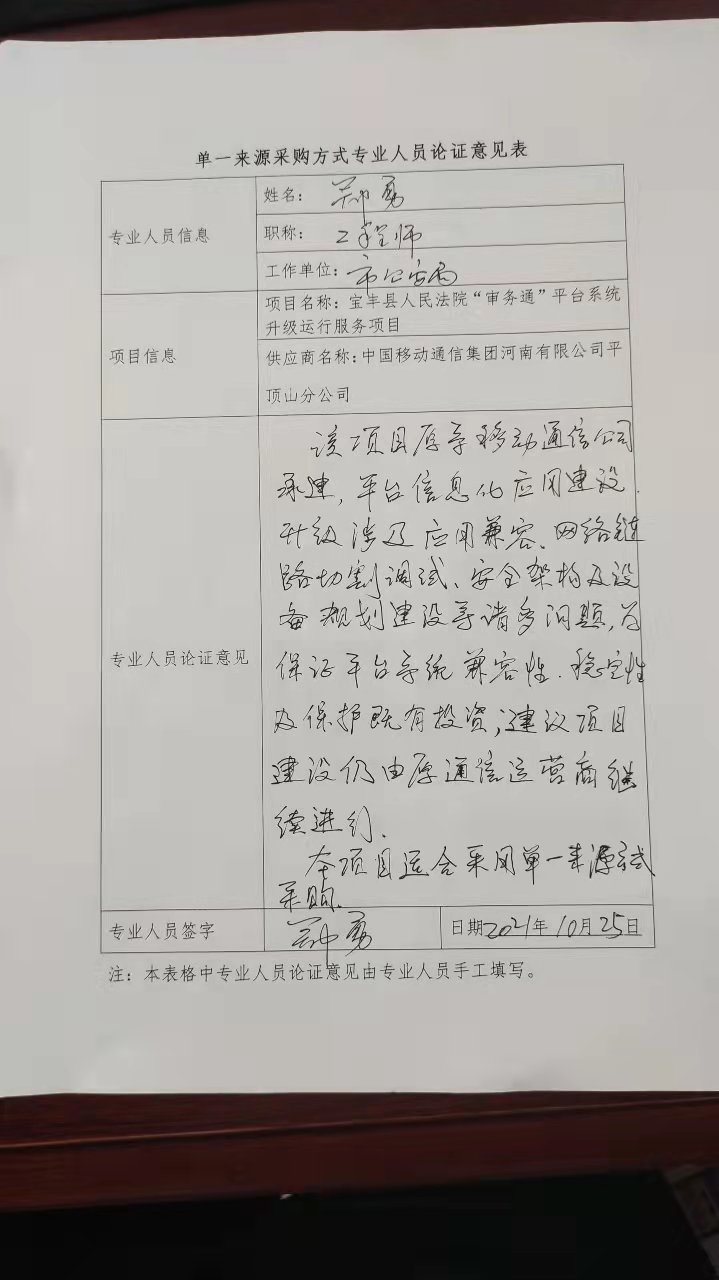 单一来源采购方式专业人员论证意见表
专业人员信息
姓名：郑勇
职称：工程师
工作单位：市公安局
项目信息
项目名称：宝丰县人民法院“审务通”平台系统
升级运行服务项目
供应商名称：中国移动通信集团河南有限公司平
顶山分公司
专业人员论证意见
该项目原系移动通信公司
承建，平台信息化应用建设、
升级涉及应用兼容、网络链
路切割调试、安全架构及设
备规划建设等诸多问题，为
保证平台系统兼容性、稳定性
及保护既有投资；建议项目
建设仍由原通信运营商继
续进行。
本项目适合采用单一来源方式
采购。
专业人员签字
郑勇
日期2021年10月25日
注：本表格中专业人员论证意见由专业人员手工填写。